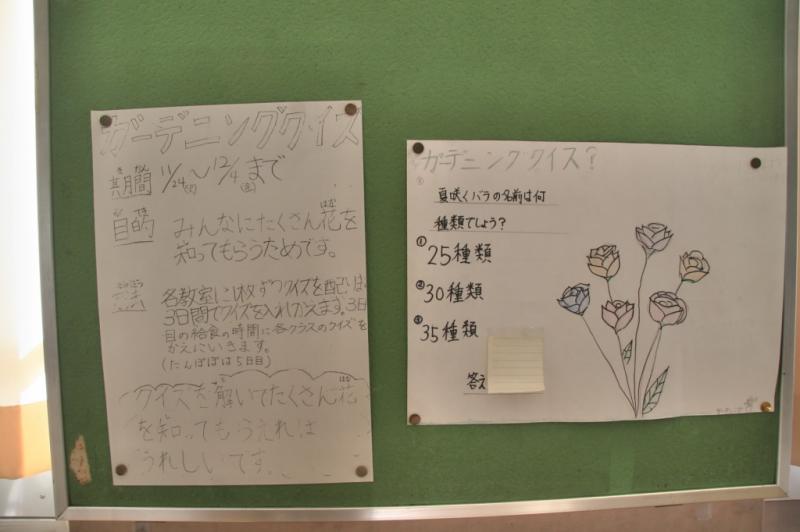 ガーデニングクイズ
期間 11/24(火)～12/4(金)まで
目的 みんなにたくさん花を
知ってもらうためです。
各教室に1枚ずつクイズを配ば
3日間でクイズを入れかえます。3日
目の給食の時間に各クラスのクイズを
かえにいきます。
(たんぽぽは5日目)
クイズを解いてたくさん花
を知ってもらえれば
うれしいです。
ガーデニングクイズ?
夏咲くバラの名前は何
種類でしょう?
① 25種類
② 30種類
③ 35種類
答え